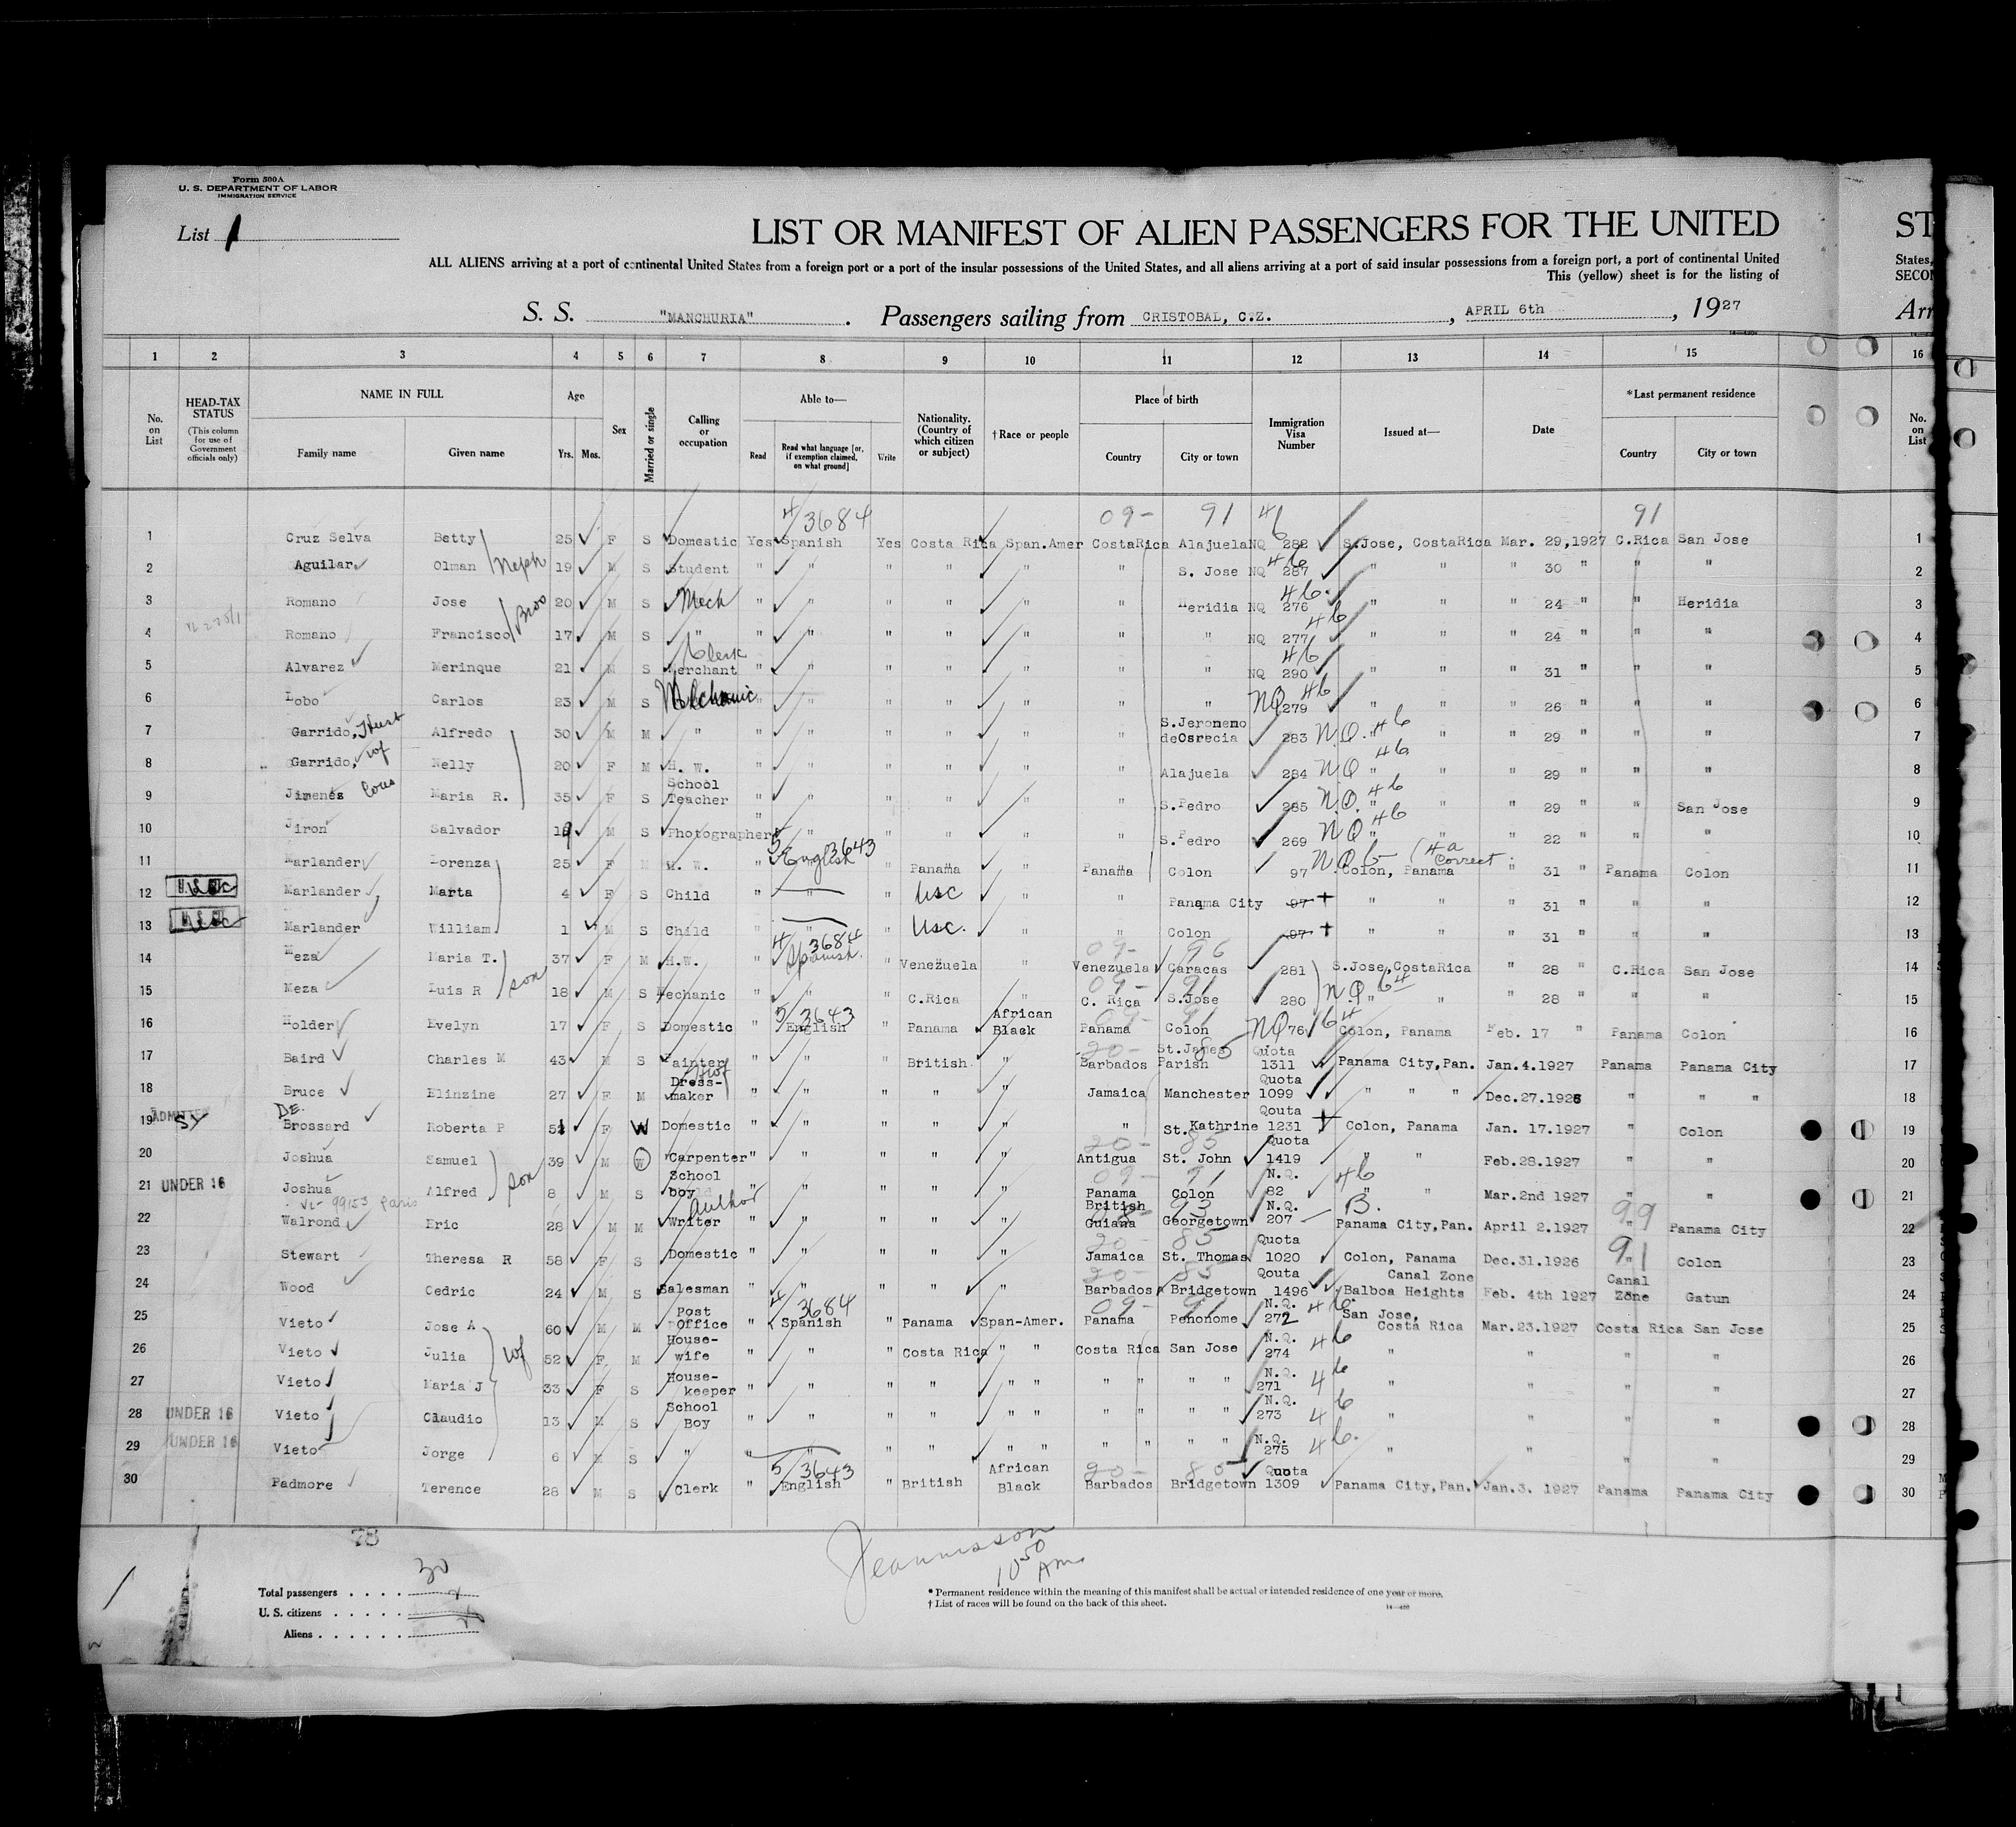 Form 500 A
U. S. DEPARTMENT OF LABOR
IMMIGRATION SERVICE
List 1
LIST OR MANIFEST OF ALIEN PASSENGERS FOR THE UNITED
ST
ALL ALIENS arriving at a port of continental United States from a foreign port or a port of the insular possessions of the United States, and all aliens arriving at a port of said insular possessions from a foreign port, a port of continental United
States,
This (yellow) sheet is for the listing of
S. S. "MANCHURIA". Passengers sailing from CRISTOBAL, C.Z., APRIL 6th, 1927
1 2 3 4 5 6 7 8 9 10 11 12 13 14 15 16
No. on List
HEAD-TAX STATUS (This column for use of Government officials only)
NAME IN FULL
Family name Given name
Age Yrs. Mos.
Sex
Married or single
Calling or occupation
Able to—
Read Read what language [or, if exemption claimed, on what ground] Write
Nationality. (Country of which citizen or subject)
† Race or people
Place of birth
Country City or town
Immigration Visa Number
Issued at—
Date
*Last permanent residence
Country City or town
No. on List
4/3684 09- 91 46 91
1 Cruz Selva Betty 25 F S Domestic Yes Spanish Yes Costa Rica Span.Amer CostaRica Alajuela NQ 282 S.Jose, CostaRica Mar. 29,1927 C.Rica San Jose 1
2 Aguilar Olman Neph 19 M S Student " " " " " " S. Jose NQ 287 46 " " " 30 " " " 2
3 Romano Jose Bros 20 M S Mech " " " " " " Heridia NQ 276 46 " " " 24 " " Heridia 3
4 Romano Francisco 17 M S " " " " " " " " NQ 277 46 " " " 24 " " " 4
5 Alvarez Merinque 21 M S Clerk Merchant " " " " " " " NQ 290 46 " " " 31 " " " 5
6 Lobo Carlos 23 M S Mechanic " " " " " " " NQ 279 46 " " " 26 " " " 6
7 Garrido, Alfredo 30 M M " " " " " " " S.Jeronemo deOsrecia 283 N.Q. 46 " " 29 " " " 7
8 Garrido, wf Nelly 20 F M H. W. " " " " " " Alajuela 284 NQ 46 " " " 29 " " " 8
9 Jimenes Cous Maria R. 35 F S School Teacher " " " " " " S.Pedro 285 N.Q. 46 " " " 29 " " San Jose 9
10 Jiron Salvador 19 M S Photographer " " " " " " S.Pedro 269 NQ 46 " " " 22 " " " 10
11 Marlander Lorenza 25 F M H. W. " 5/3643 English " Panama " Panama Colon 97 NQ Colon, Panama Correct " 31 " Panama Colon 11
12 Marlander Marta 4 F S Child " " " USC " " Panama City 97 " " " 31 " " 12
13 Marlander William 1 M S Child " " " Usc. " " Colon 97 " " " 31 " " 13
14 Meza Maria T. 37 F M H.W. " 4/3684 Spanish. " Venezuela " 09- 96 Venezuela Caracas 281 S.Jose,CostaRica " 28 " C.Rica San Jose 14
15 Meza Luis R son 18 M S Mechanic " " " C.Rica " 09- 91 C. Rica S.Jose 280 NQ " " " 28 " " " 15
16 Holder Evelyn 17 F S Domestic " 5/3643 English " Panama African Black 09- 91 Panama Colon NQ 76 Colon, Panama Feb. 17 " Panama Colon 16
17 Baird Charles M 43 M S Painter " " " British " 20- 85 Barbados St.James Parish Quota 1311 Panama City,Pan. Jan.4.1927 Panama Panama City 17
18 Bruce Elinzine 27 F M Dress-maker " " " " " Jamaica Manchester Quota 1099 " " " Dec.27.1926 " " " 18
19 ADMITTED De Brossard Roberta P 51 F W Domestic " " " " " " St. Kathrine Qouta 1231 Colon, Panama Jan. 17.1927 " Colon 19
20 Joshua Samuel 39 M W Carpenter " " " " " 20- 85 Antigua St. John Quota 1419 " " Feb.28.1927 " " 20
21 UNDER 16 Joshua Alfred son 8 M S School boy " " " " " 09- 91 Panama Colon N.Q. 82 46 " " Mar.2nd 1927 " " 21
22 Walrond Eric 28 M M Author Writer " " " " " British Guiana 93 Georgetown N.Q. 207 B. Panama City,Pan. April 2.1927 99 " Panama City 22
23 Stewart Theresa R 58 F S Domestic " " " " " 20- 85 Jamaica St. Thomas Quota 1020 Colon, Panama Dec.31.1926 91 " Colon 23
24 Wood Cedric 24 M S Salesman " " " " " 20- 85 Barbados Bridgetown Qouta 1496 Canal Zone Balboa Heights Feb. 4th 1927 Canal Zone Gatun 24
25 Vieto Jose A 60 M M Post Office " 4/3684 Spanish " Panama Span-Amer. 09- 91 Panama Penonome N.Q. 272 46 San Jose, Costa Rica Mar.23.1927 Costa Rica San Jose 25
26 Vieto Julia wf 52 F M House-wife " " " Costa Rica " " Costa Rica San Jose N.Q. 274 46 " " " " 26
27 Vieto Maria J 33 F S House-keeper " " " " " " " " " " N.Q. 271 46 " " " " 27
28 UNDER 16 Vieto Claudio 13 M S School Boy " " " " " " " " " " N.Q. 273 46 " " " " 28
29 UNDER 16 Vieto Jorge 6 M S " " " " " " " " " " " N.Q. 275 46. " " " " 29
30 Padmore Terence 28 M S Clerk " 5/3643 English " British African Black 20- 85 Barbados Bridgetown Quota 1309 Panama City,Pan. Jan.3. 1927 Panama Panama City 30
Jeannisson
10 50 Am.
Total passengers . . . . 30
U. S. citizens . . . . . 2
Aliens . . . . . .
* Permanent residence within the meaning of this manifest shall be actual or intended residence of one year or more.
† List of races will be found on the back of this sheet.